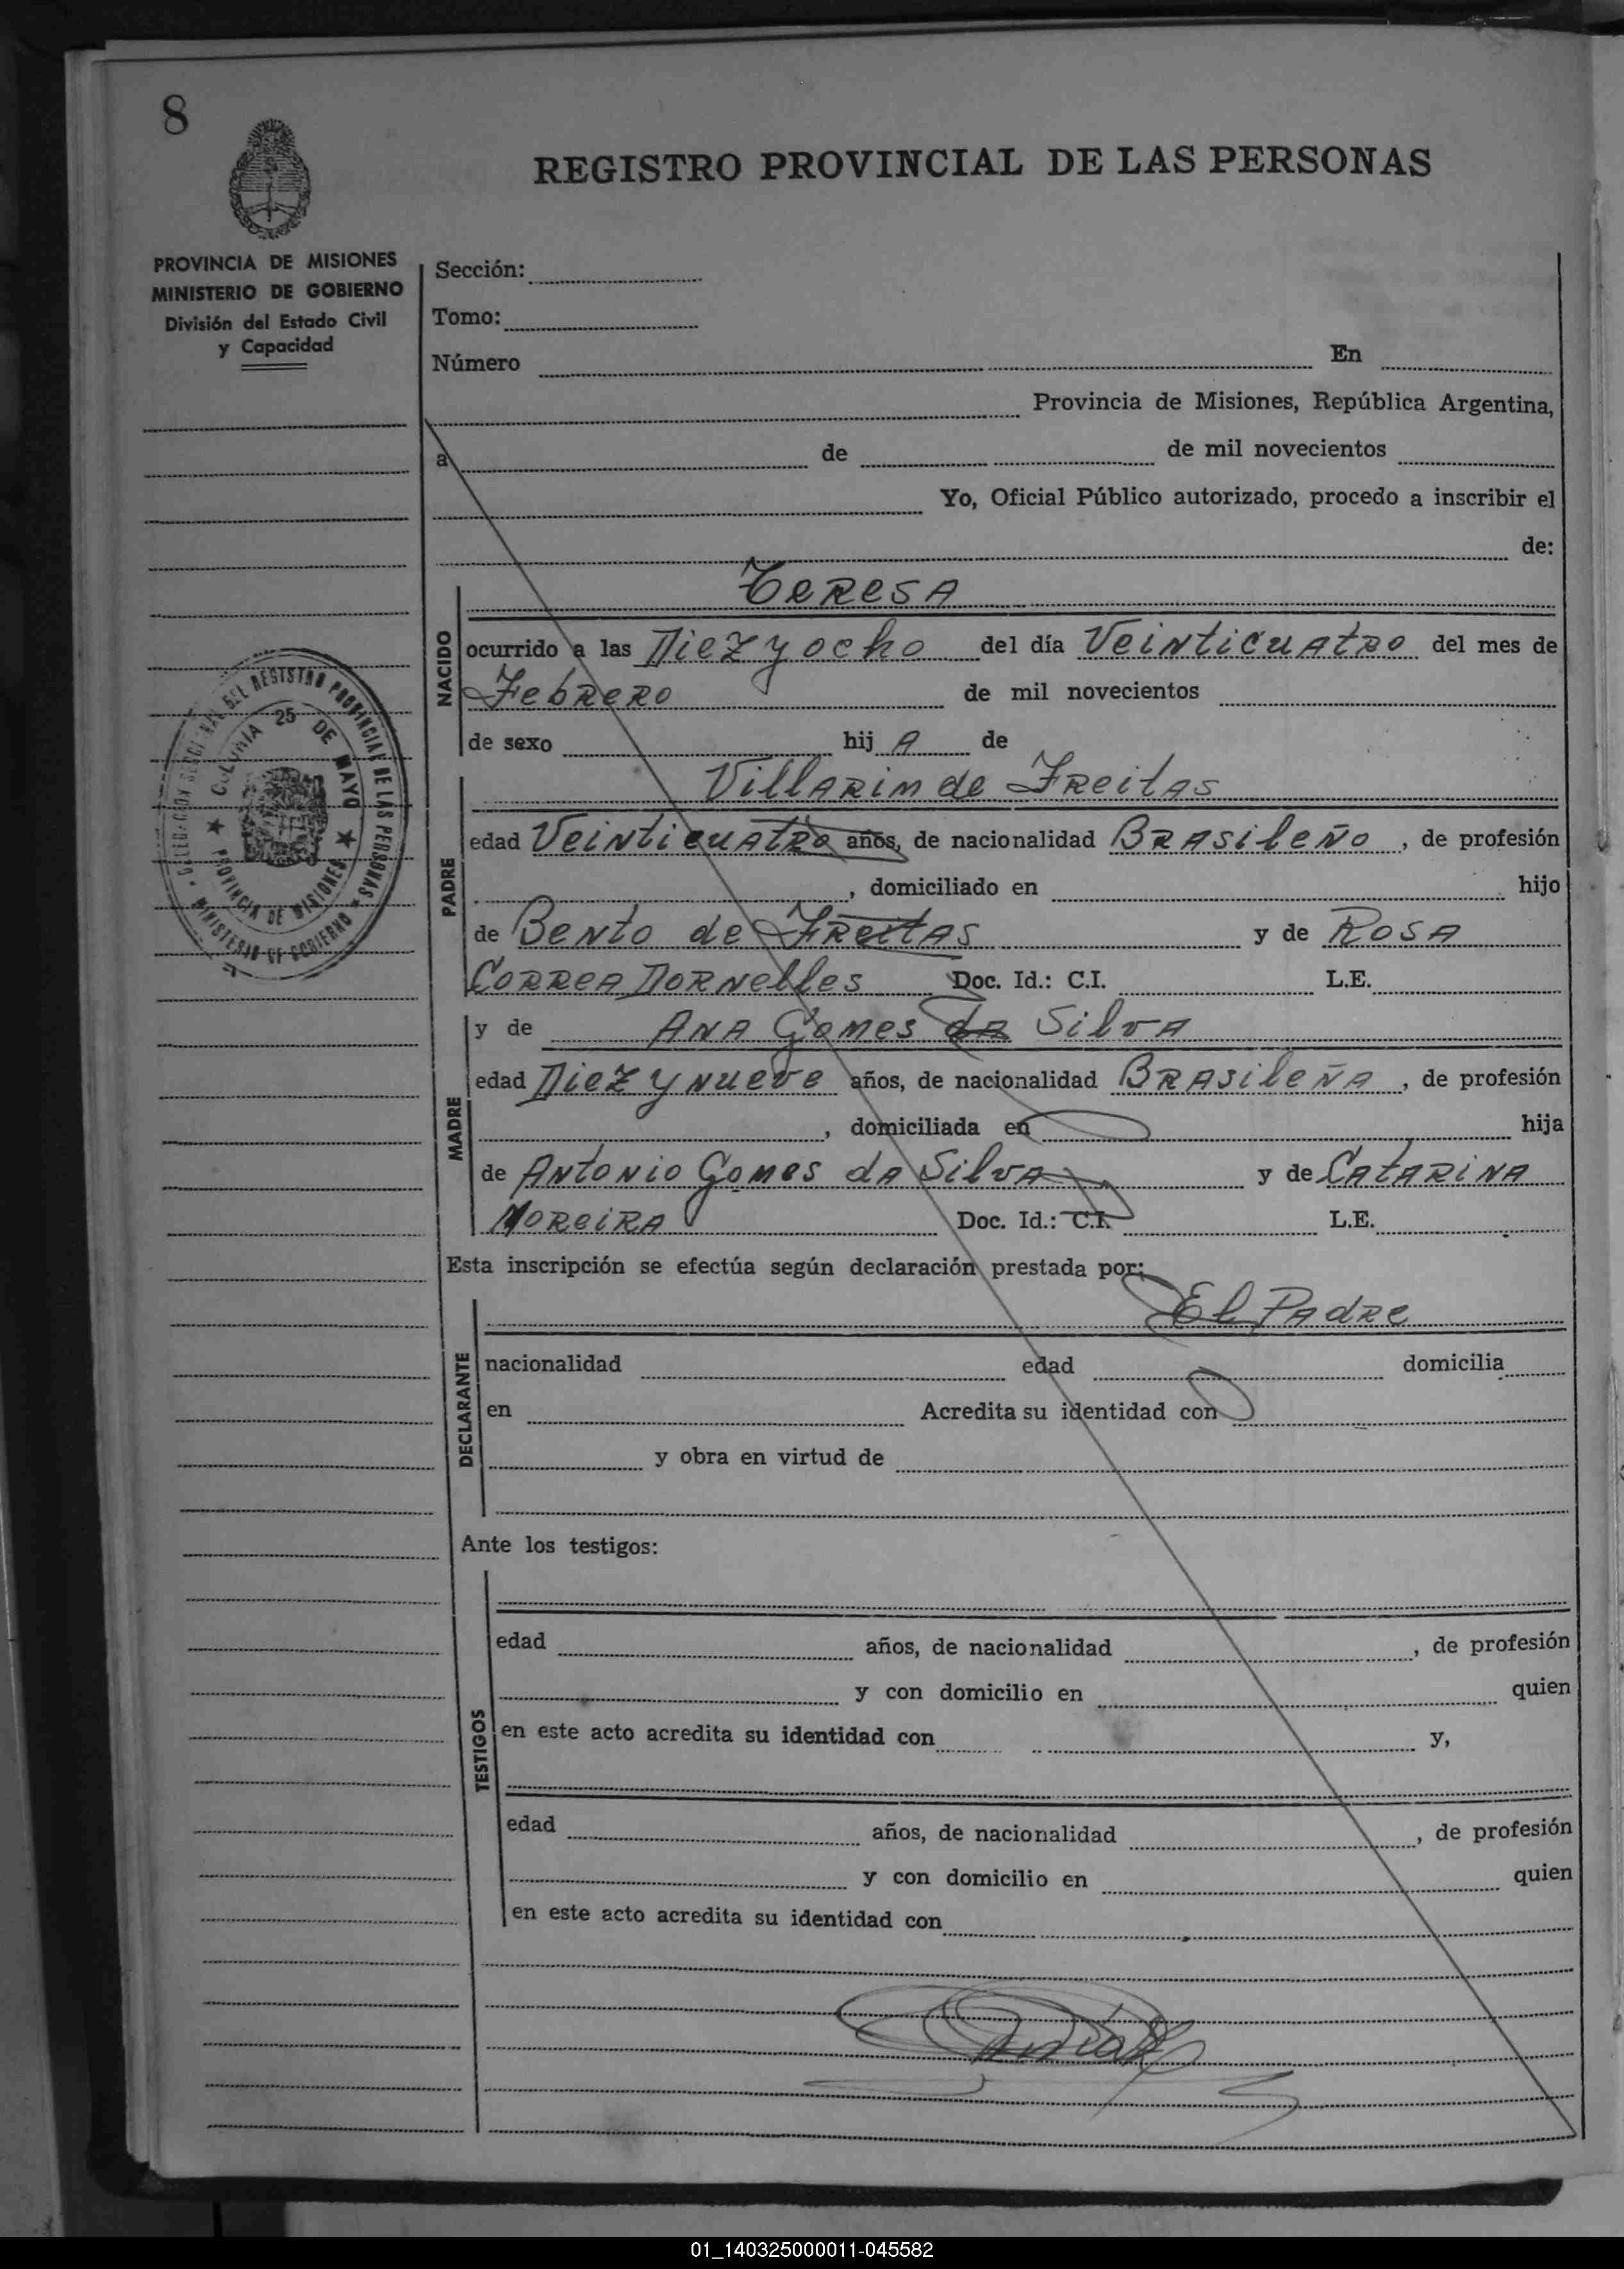 8
REGISTRO PROVINCIAL DE LAS PERSONAS
PROVINCIA DE MISIONES
MINISTERIO DE GOBIERNO
División del Estado Civil
y Capacidad
Sección:
Tomo:
Número En
Provincia de Misiones, República Argentina,
a de de mil novecientos
Yo, Oficial Público autorizado, procedo a inscribir el
de:
TeResA
NACIDO
ocurrido a las Diez y ocho del día VeiNticuAtRo del mes de
FebReRo de mil novecientos
de sexo hij A de
VillARim de FReitAs
PADRE
edad VeiNticuAtRo años, de nacionalidad BRAsileÑo, de profesión
, domiciliado en hijo
de BeNto de FReitAs y de RosA
CoRReA DoRNelles Doc. Id.: C.I. L.E.
y de ANA Gomes da SilvA
MADRE
edad Diez y Nueve años, de nacionalidad BRAsileÑA, de profesión
, domiciliada en hija
de ANtoNio Gomes dA SilvA y de CAtARiNA
MoReiRA Doc. Id.: C.I. L.E.
Esta inscripción se efectúa según declaración prestada por:
El PAdRe
DECLARANTE
nacionalidad edad domicilia
en Acredita su identidad con
y obra en virtud de
Ante los testigos:
TESTIGOS
edad años, de nacionalidad , de profesión
y con domicilio en quien
en este acto acredita su identidad con y,
edad años, de nacionalidad , de profesión
y con domicilio en quien
en este acto acredita su identidad con
DEL REGISTRO PROVINCIAL DE LAS PERSONAS
MINISTERIO DE GOBIERNO
COLONIA 25 DE MAYO
PROVINCIA DE MISIONES
01_140325000011-045582